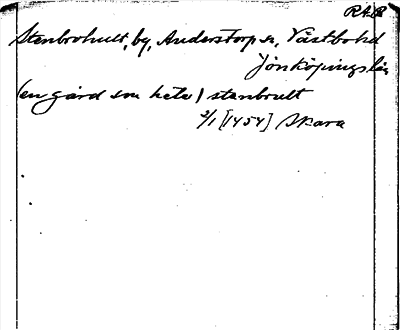 RAP
Stenbrohult, by, Anderstorp sn, Västbo hd
Jönköpings län
(en gård som heter) stenbrult
2/1 [1454] Skara